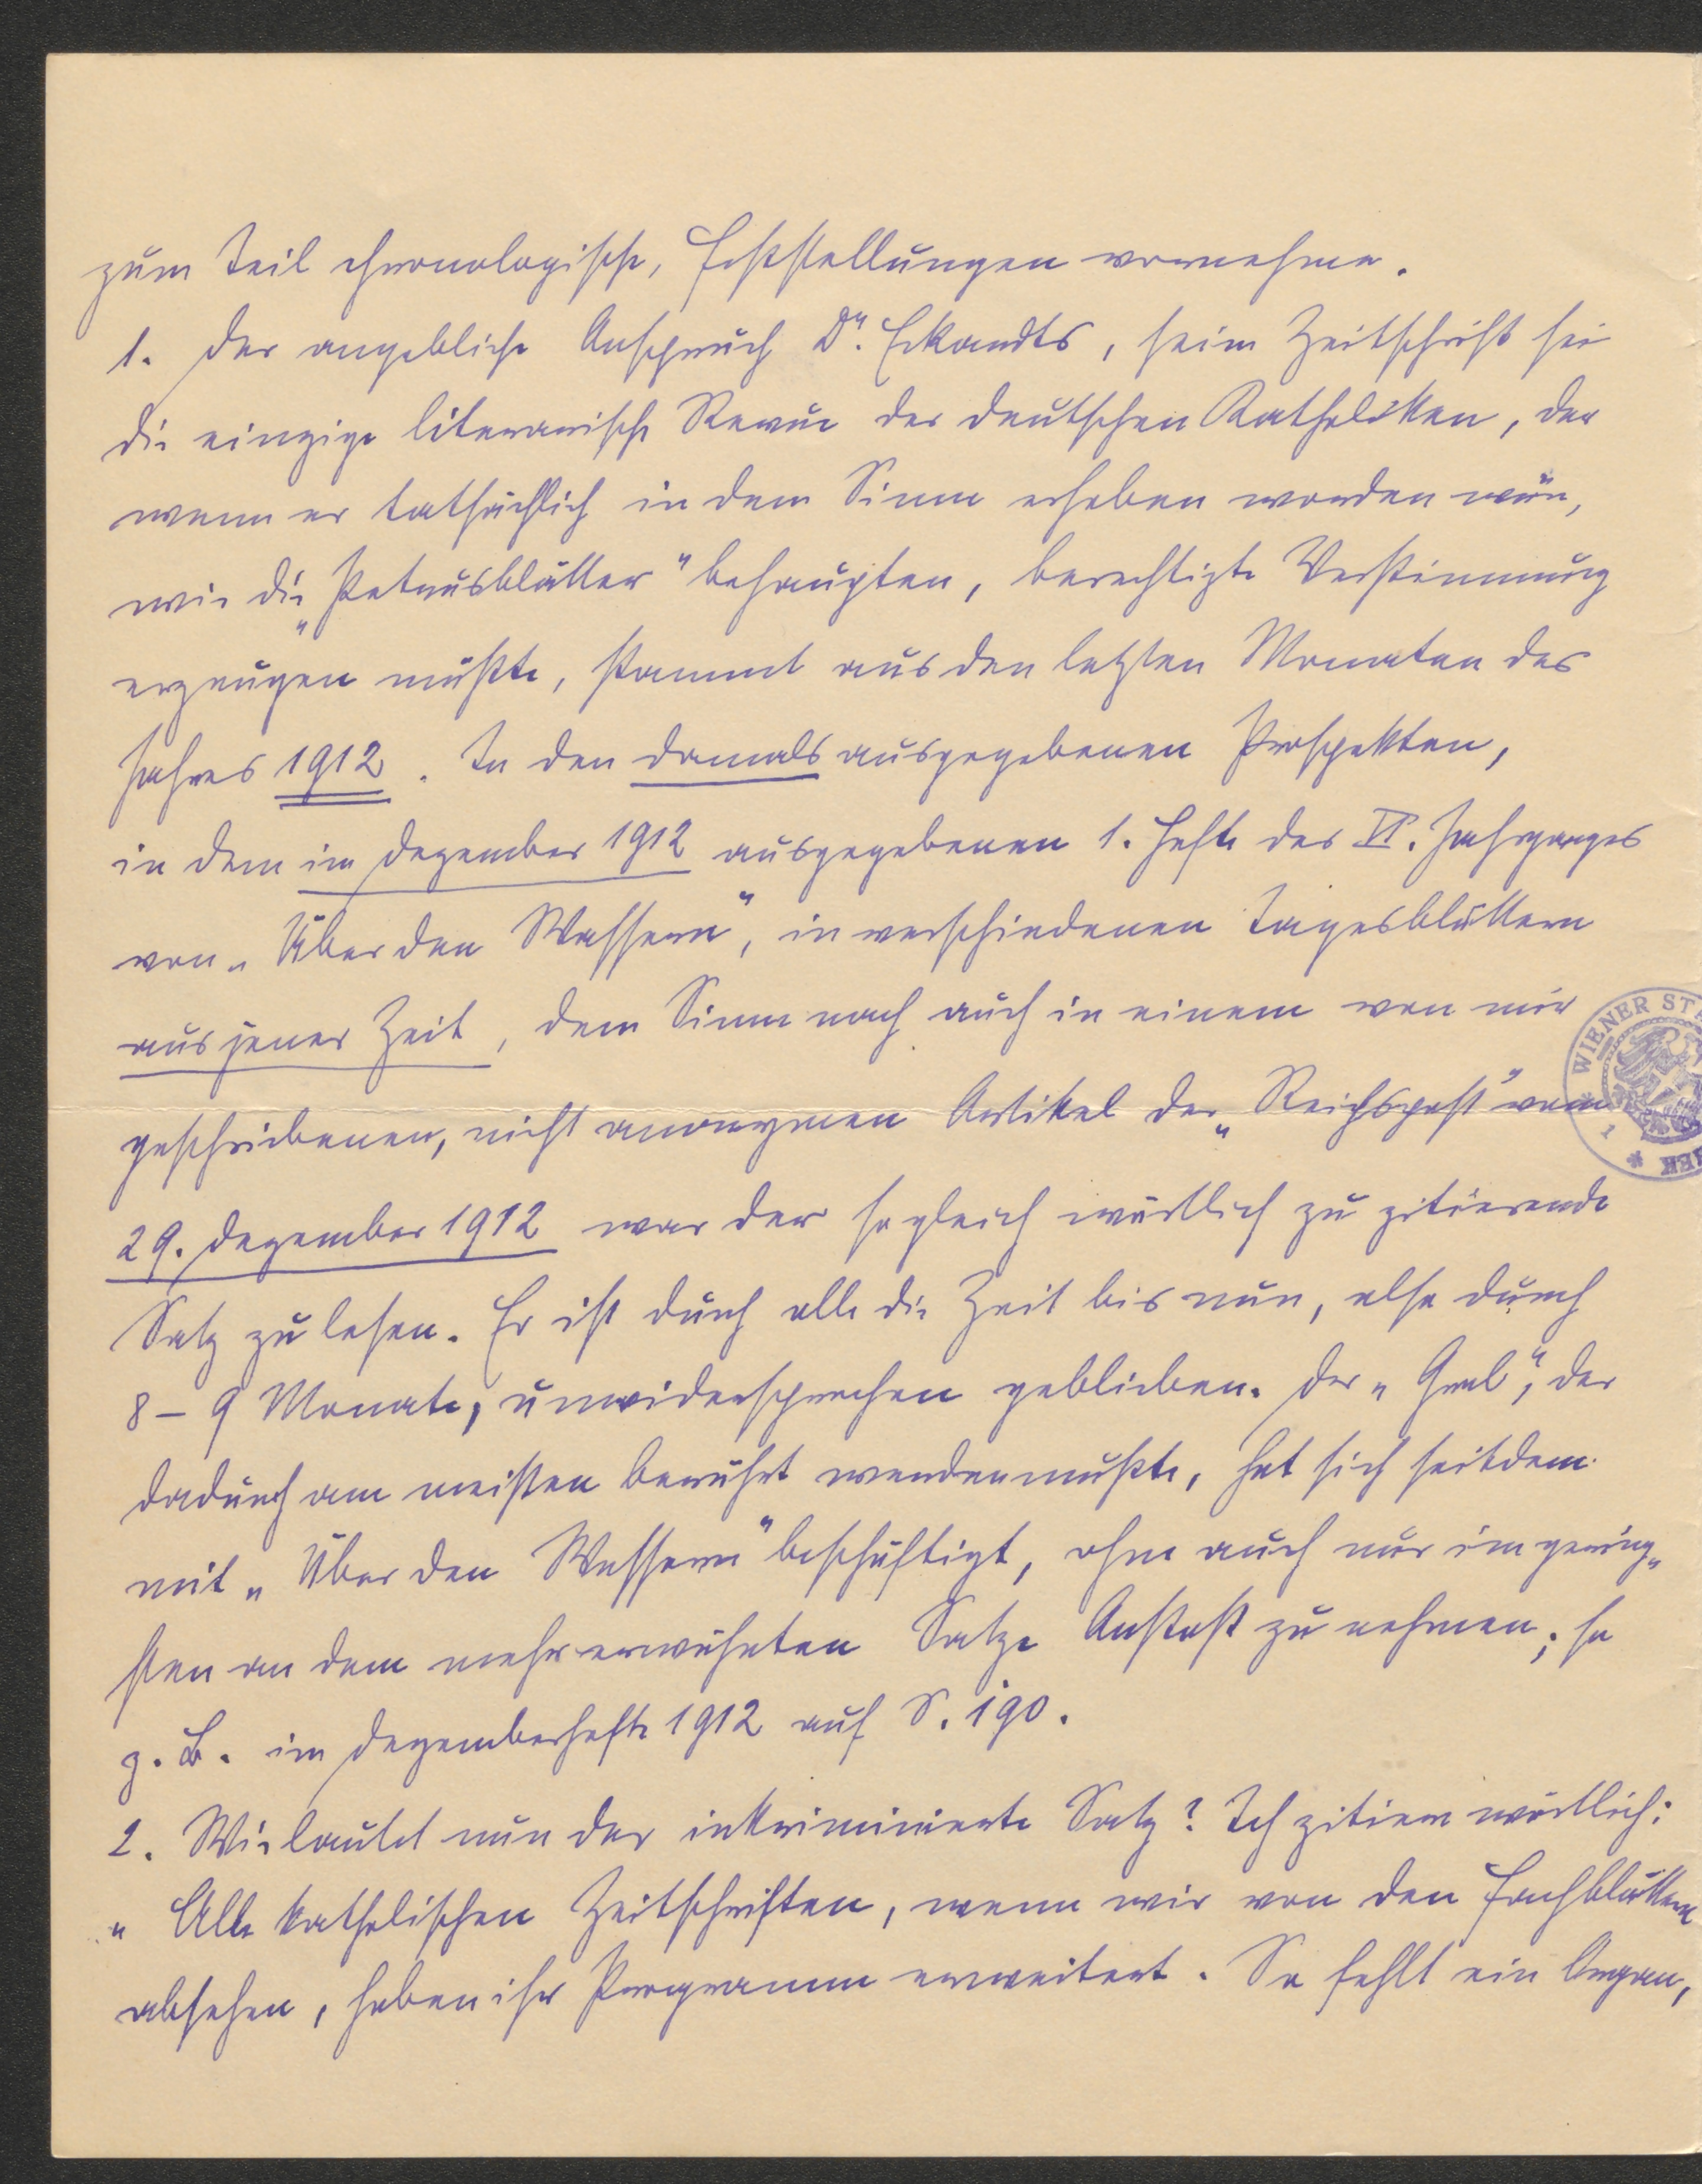 zum Teil chronologische, Feststellungen vornehme.
1. Der angebliche Anspruch Dr. Eckardts, seine Zeitschrift sei
die einzige literarische Revue der deutschen Katholiken, der
wenn er tatsächlich in dem Sinne erhoben worden wäre,
wie die „Petrusblätter" behaupten, berechtigte Verstimmung
erzeugen müßte, stammt aus den letzten Monaten des
Jahres 1912. In den damals ausgegebenen Prospekten,
in dem im Dezember 1912 ausgegebenen 1. Hefte des VI. Jahrganges
von „Über den Wassern", in verschiedenen Tagesblättern
aus jener Zeit, dem Sinne nach auch in einem von mir
geschriebenen, nicht anonymen Artikel der „Reichspost" vom
29. Dezember 1912 war der sogleich wörtlich zu zitierende
Satz zu lesen. Er ist durch alle die Zeit bis nun, also durch
8 – 9 Monate, unwidersprochen geblieben. Der „Gral", der
dadurch am meisten berührt werden mußte, hat sich seitdem
mit „Über den Wassern" beschäftigt, ohne auch nur im gering„
sten an dem mehrerwähnten Satze Anstoß zu nehmen; so
z. B. im Dezemberhefte 1912 auf S. 190.
2. Wie lautet nun der inkriminierte Satz? Ich zitiere wörtlich:
„Alle katholischen Zeitschriften, wenn wir von den Fachblättern
absehen, haben ihr Programm erweitert. So fehlt ein Organ,
WIENER ST